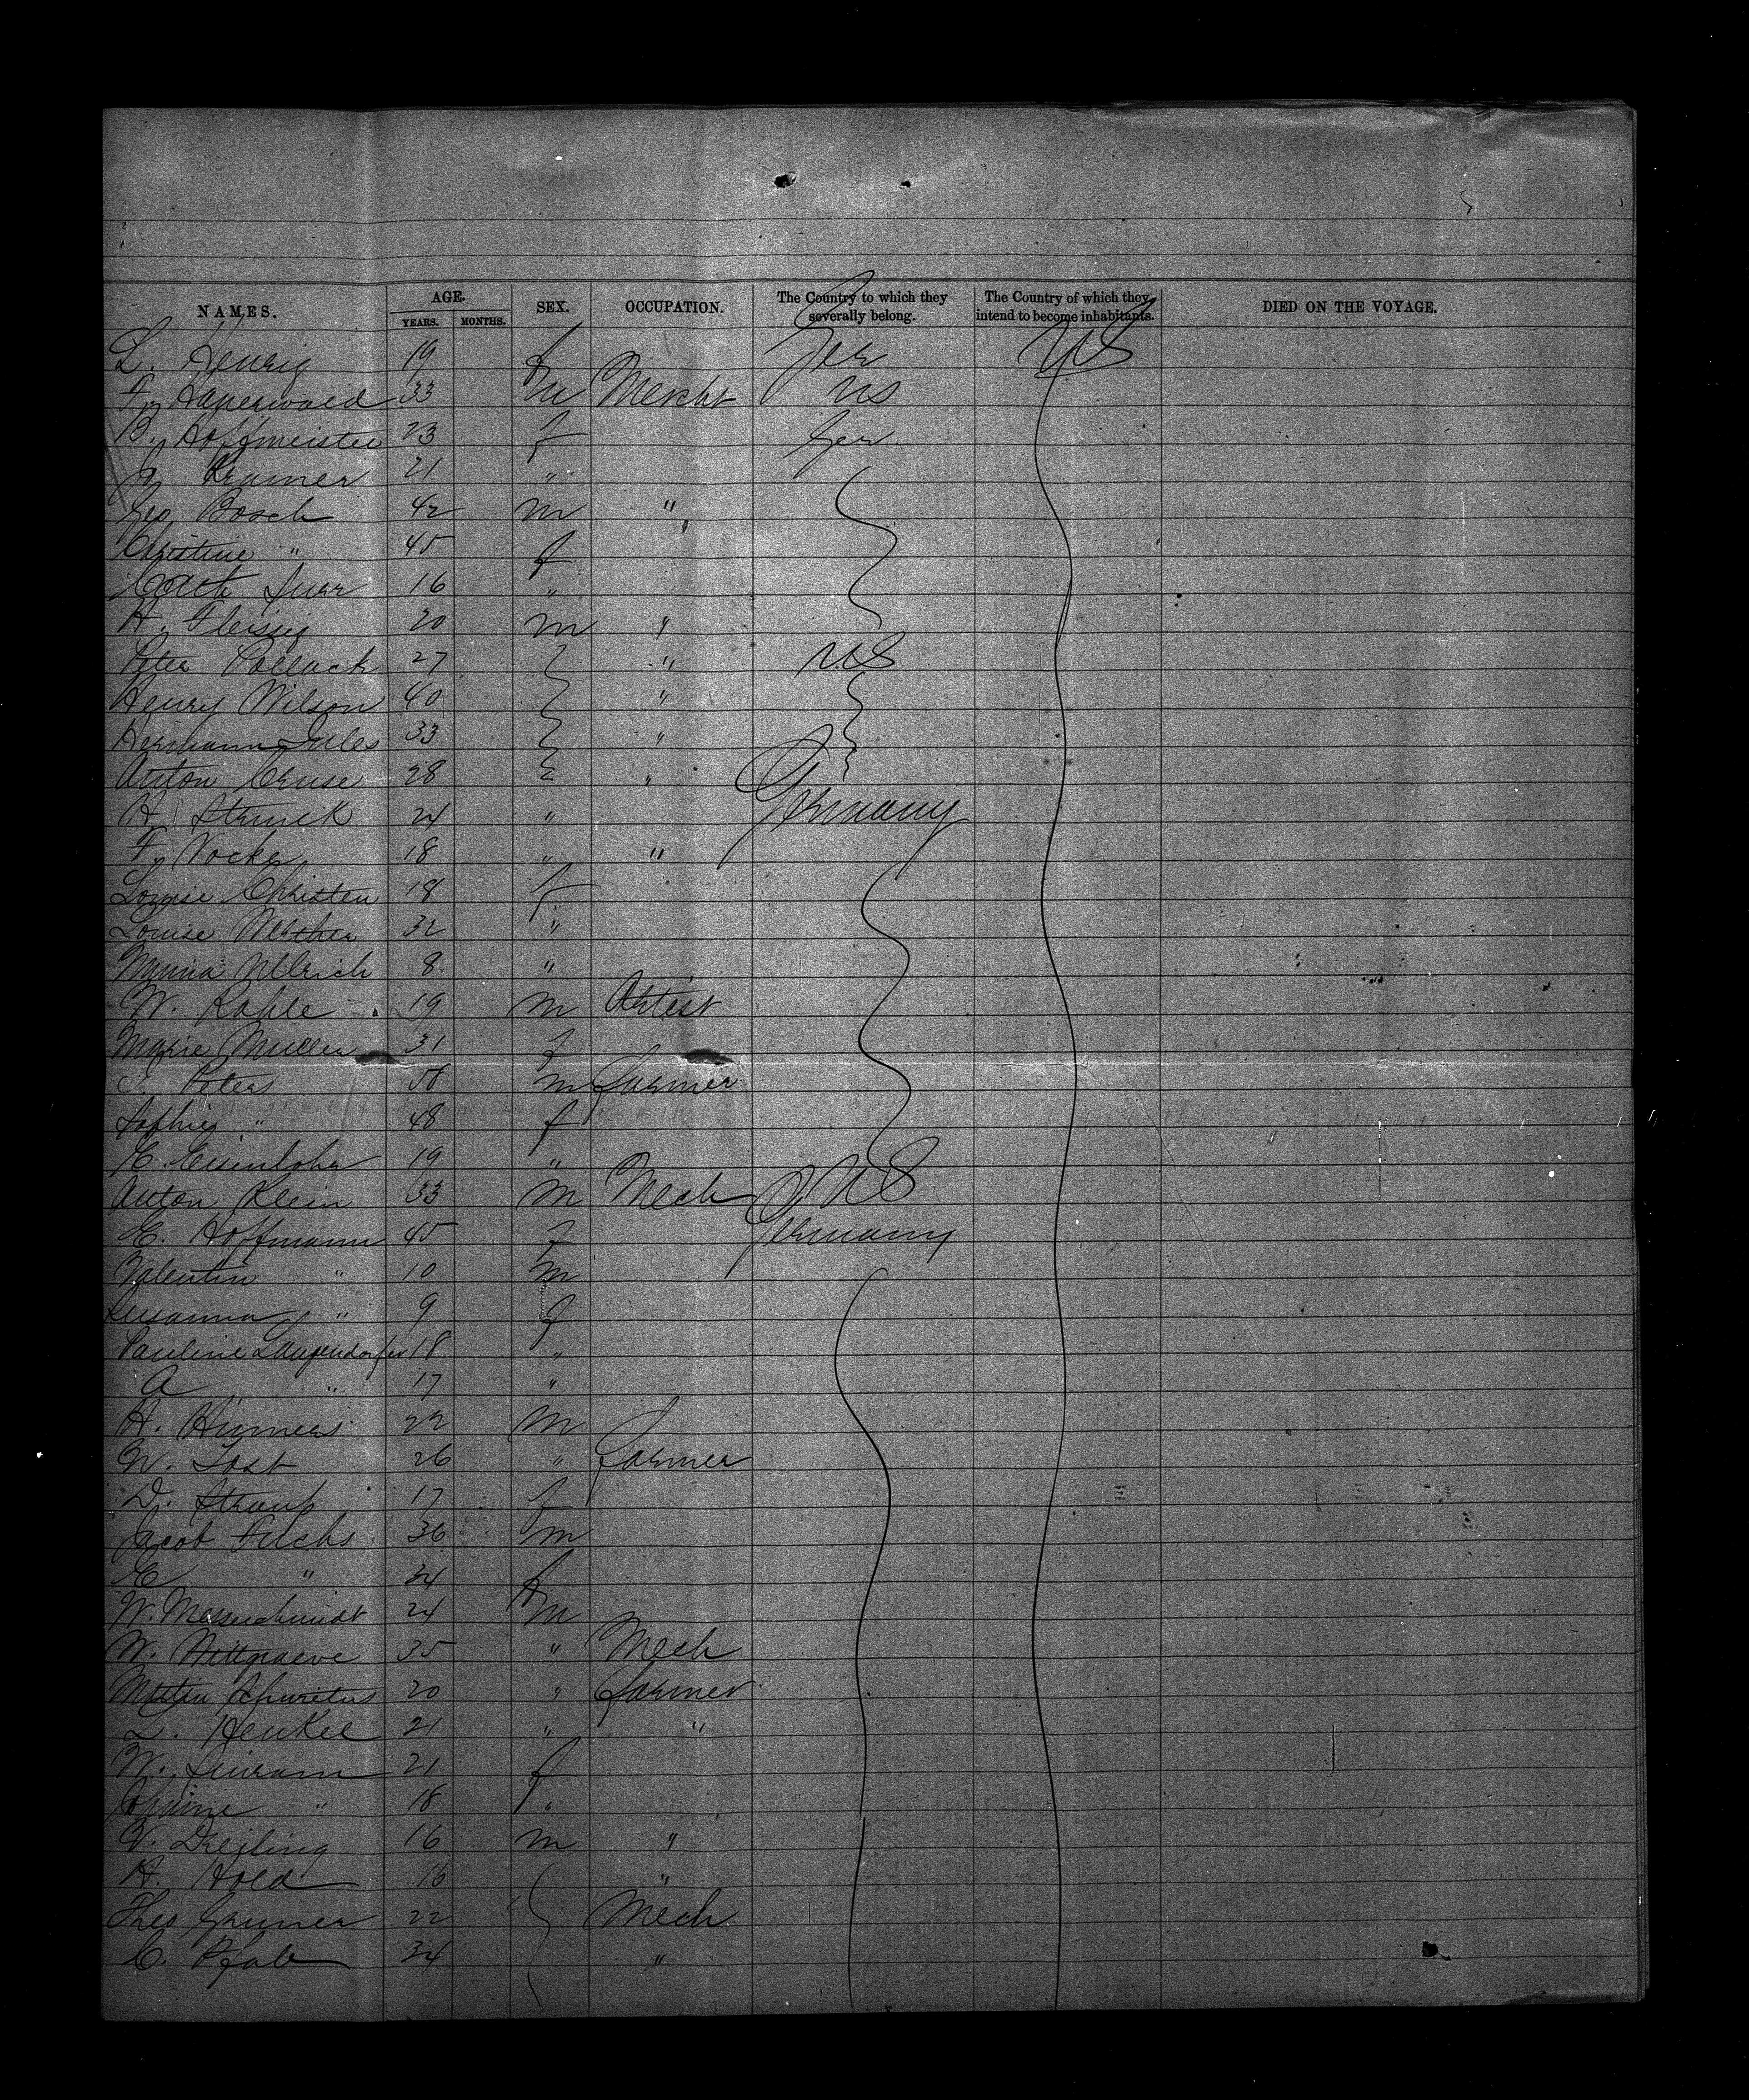 NAMES. AGE. YEARS. MONTHS. SEX. OCCUPATION. The Country to which they severally belong. The Country of which they intend to become inhabitants. DIED ON THE VOYAGE.
L. Henrig 19 f Ger US
F. Haperwald 33 m Mercht US
B. Hoffmeister 23 f Ger
J. Kramer 21 "
Geo Bosch 42 m "
Christine " 45 f
Cath 16 "
H. Fleissig 20 m "
Peter Pollack 27 " US
Henry Wilson 40 "
Hermann Iules 33 "
Anton Cruse 28 "
H Struick 24 " Germany
F. Nocke 18 " "
Louise Christen 18 f
Louise 32 "
Minna Ullrich 8 "
W. Kahle 19 m Artist
Marie Muller 31 f
Peters 58 m farmer
Sophie " 48 f
E. Eisenlohr 19 "
Anton Klein 33 m Mech US
E. Hoffmann 45 f Germany
Valentin " 10 m
Susanna " 9 f
Pauline Langendorfer 18 "
A " 17 "
H. Hinners 22 m
W. Jost 26 " farmer
D. Straub 17 f
Jacob Fuchs 36 m
E " 34 f
W. Messerschmidt 24 m
W. Hittgraeve 35 " Mech
20 " farmer
L. Henkel 21 " "
W. 21 f
" 18 "
V. Dreiling 16 m "
H. Hold 16 "
Theo Gruner 22 Mech
C. Pfab 34 "